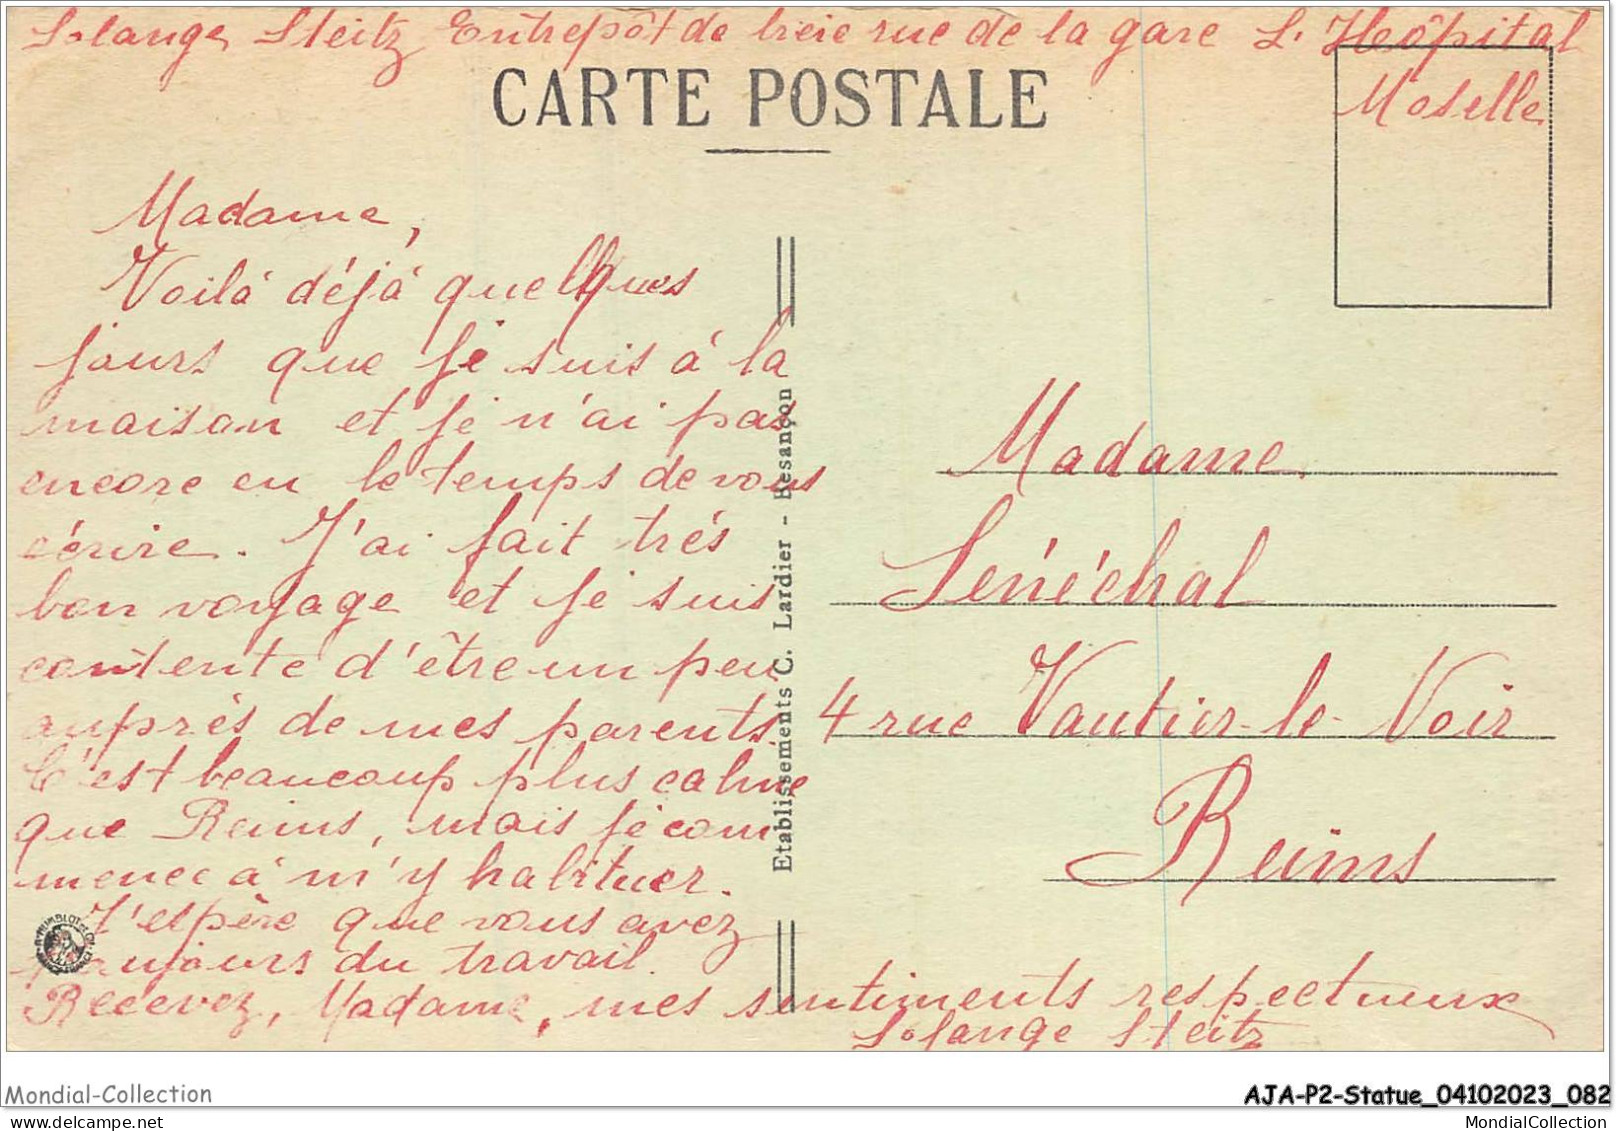 Solange Steitz Entrepôt de bière rue de la gare L'Hôpital
Moselle
CARTE POSTALE
Madame,
Voilà déjà quelques
jours que je suis à la
maison et je n'ai pas
encore eu le temps de vous
écrire. J'ai fait très
bon voyage et je suis
contente d'être un peu
auprès de mes parents.
C'est beaucoup plus calme
que Reims, mais je com
mence à m'y habituer.
J'espère que vous avez
toujours du travail.
Recevez, Madame, mes sentiments respectueux
Solange Steitz
Etablissements C. Lardier - Besançon
Madame
Sénéchal
4 rue Vautier-le-Noir
Reims
Mondial-Collection
AJA-P2-Statue_04102023_082
MondialCollection